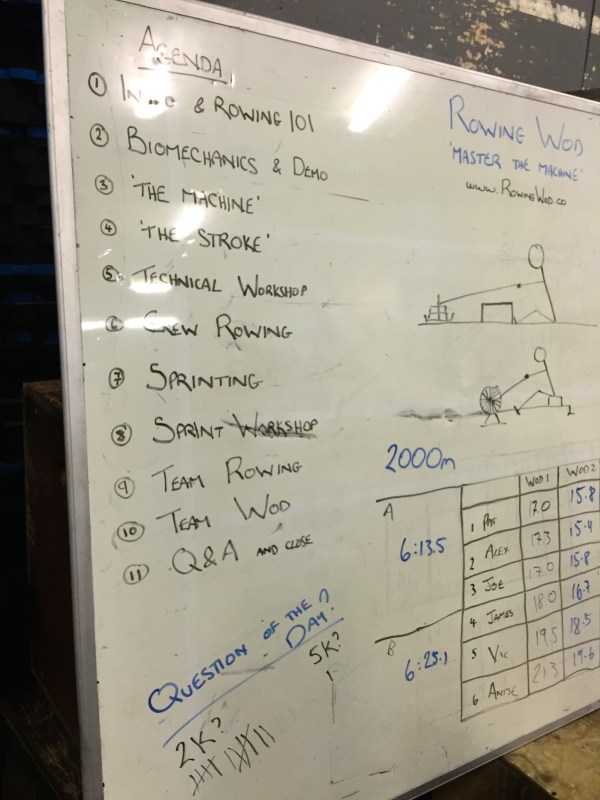 AGENDA
1 & ROWING 101
2 BIOMECHANICS & DEMO
3 'THE MACHINE'
4 'THE STROKE'
5 TECHNICAL WORKSHOP
6 CREW ROWING
7 SPRINTING
8 SPRINT WORKSHOP
9 TEAM ROWING
10 TEAM WOD
11 Q&A AND CLOSE
QUESTION OF THE DAY?
2K?
5K?
ROWING WOD
'MASTER THE MACHINE'
www.RowingWod.co
2000m
A 6:13.5
B 6:25.1
WOD 1 WOD 2
1 PAT 17.0 15.8
2 ALEX 17.3 15.4
3 JOE 17.0 15.8
4 JAMES 18.0 16.7
5 VIC 19.5 18.5
6 21.3 19.6